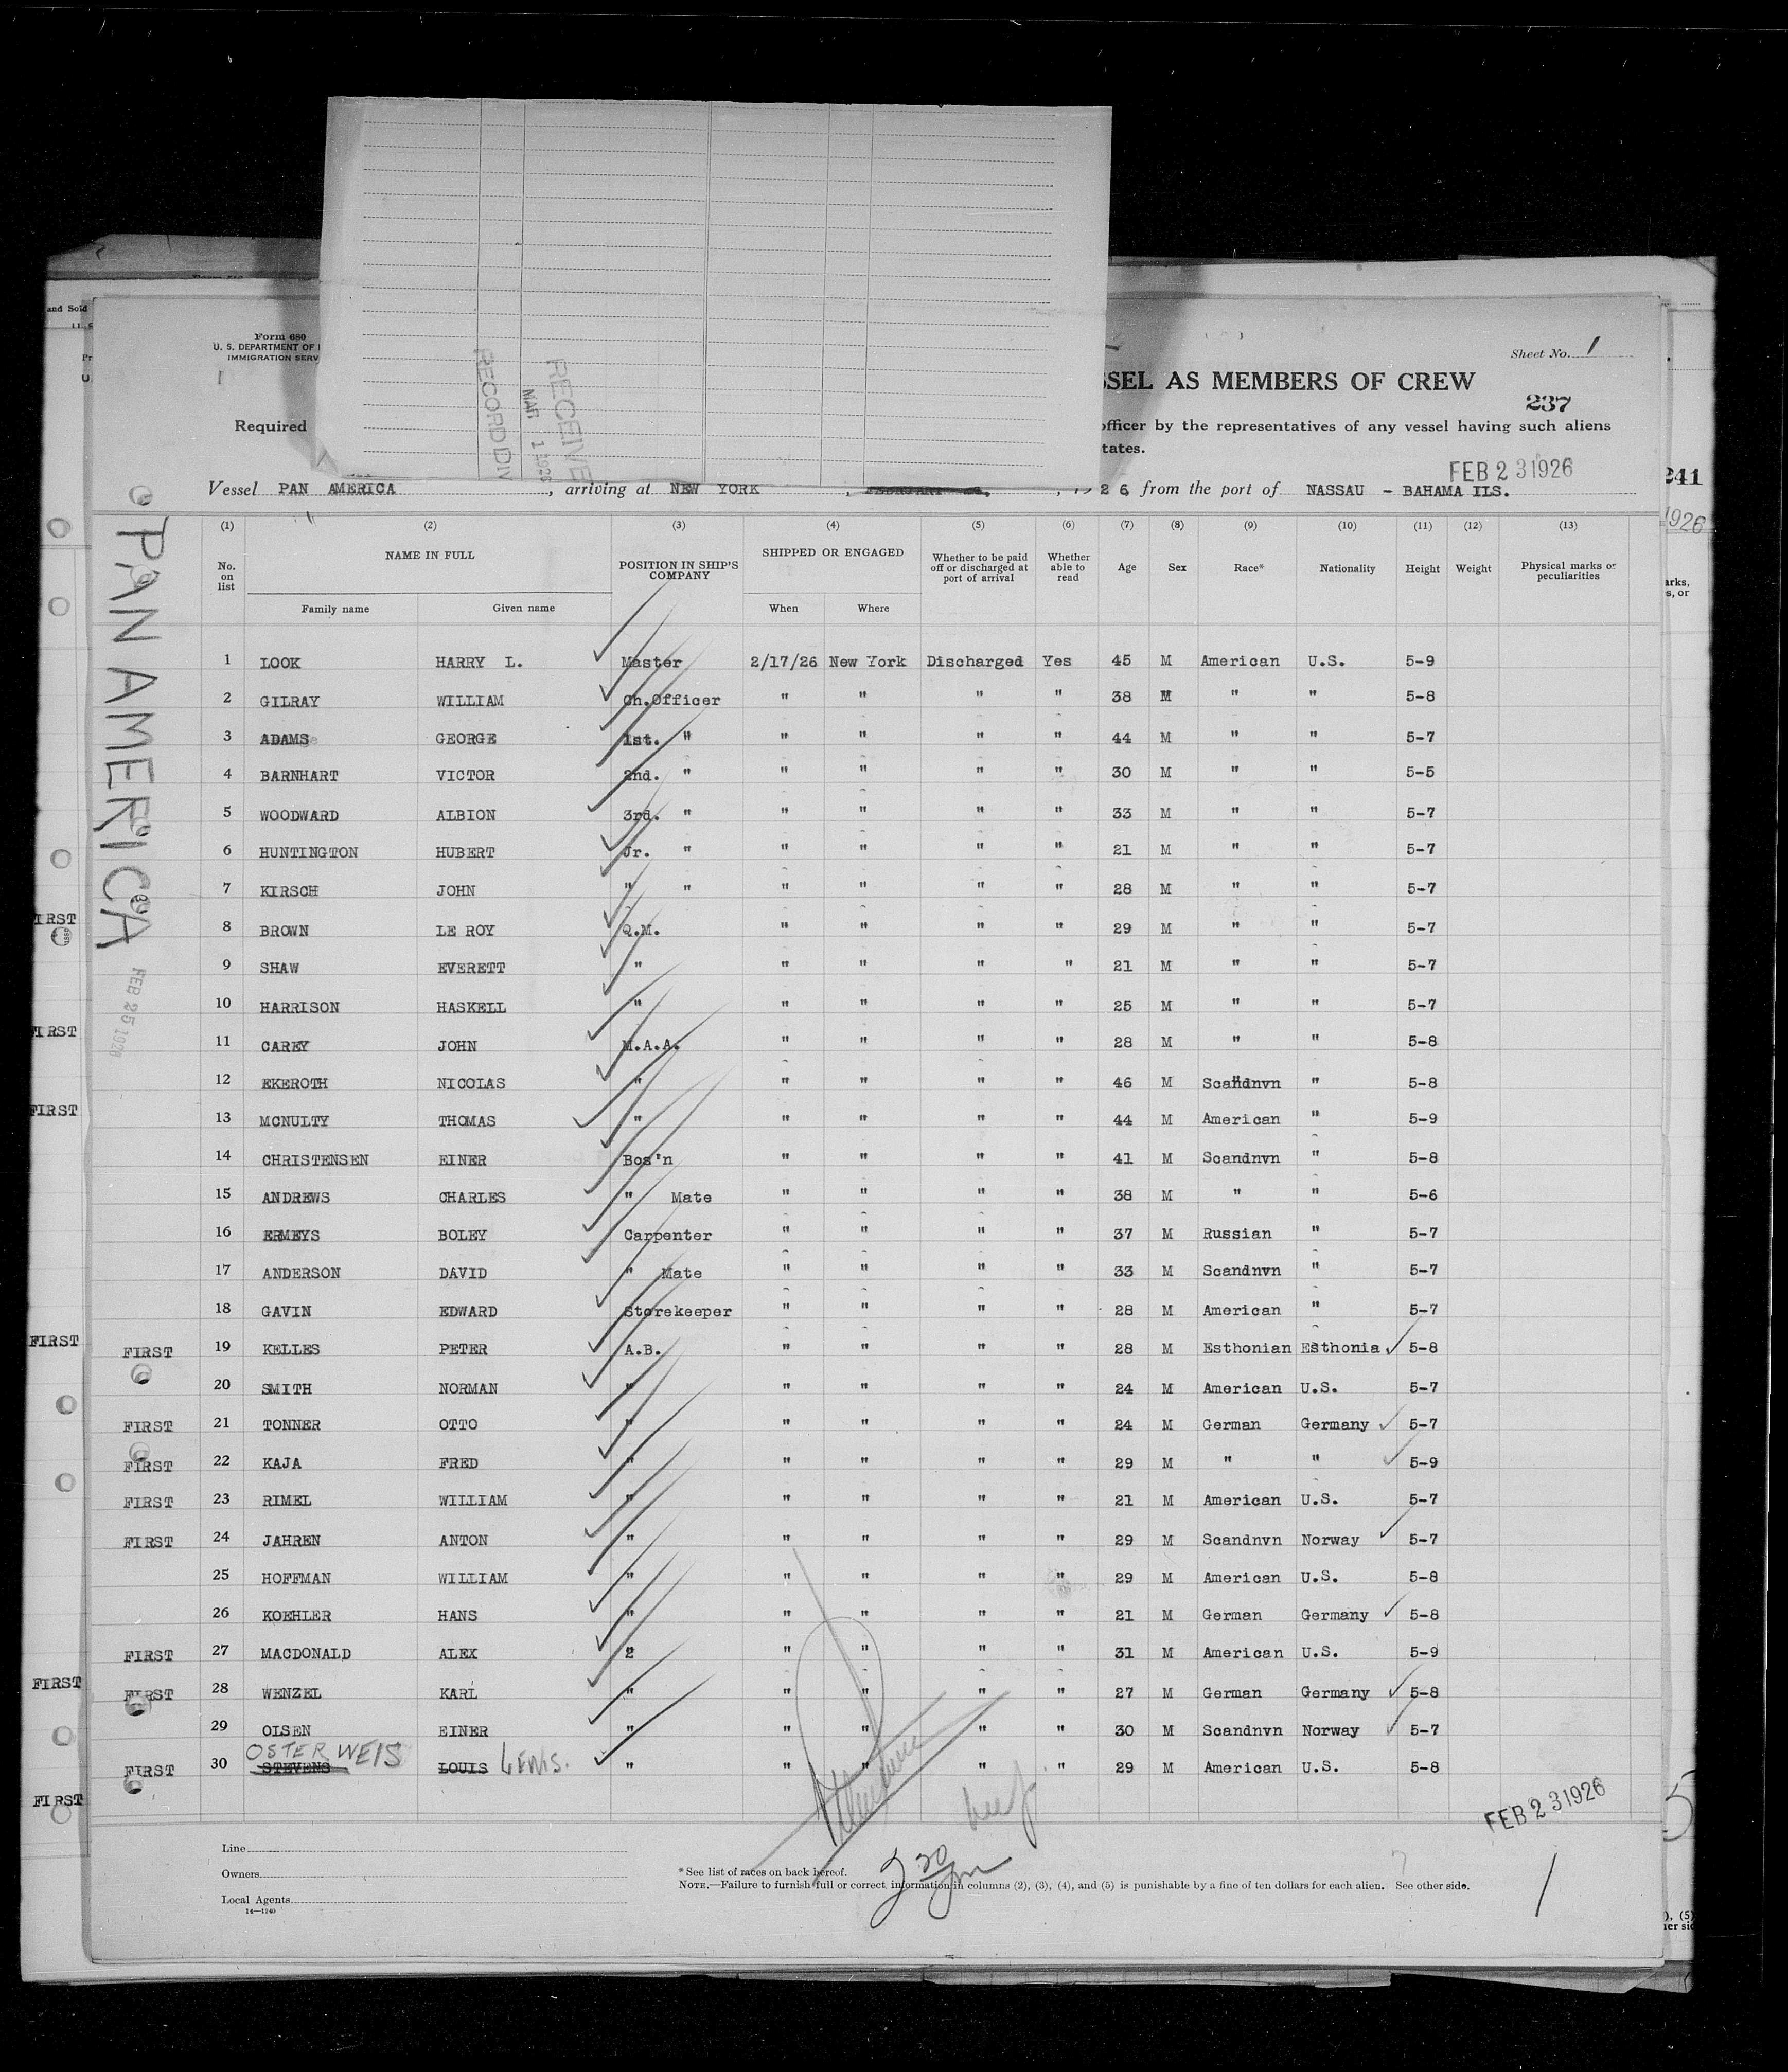 Form 680
U. S. DEPARTMENT OF
IMMIGRATION SERV
Sheet No. 1
SSEL AS MEMBERS OF CREW
237
Required
officer by the representatives of any vessel having such aliens
tates.
RECEIVE
MAR 1 192
RECORD DIV
FEB 2 31926
Vessel PAN AMERICA, arriving at NEW YORK, 26 from the port of NASSAU - BAHAMA ILS.
241
1926
PAN AMERICA
FEB 25 1926
(1) (2) (3) (4) (5) (6) (7) (8) (9) (10) (11) (12) (13)
No. on list
NAME IN FULL
Family name Given name
POSITION IN SHIP'S COMPANY
SHIPPED OR ENGAGED
When Where
Whether to be paid off or discharged at port of arrival
Whether able to read
Age Sex Race* Nationality Height Weight
Physical marks or peculiarities
1 LOOK HARRY L. Master 2/17/26 New York Discharged Yes 45 M American U.S. 5-9
2 GILRAY WILLIAM Ch.Officer " " " " 38 M " " 5-8
3 ADAMS GEORGE 1st. " " " " " 44 M " " 5-7
4 BARNHART VICTOR 2nd. " " " " " 30 M " " 5-5
5 WOODWARD ALBION 3rd. " " " " " 33 M " " 5-7
6 HUNTINGTON HUBERT Jr. " " " " " 21 M " " 5-7
7 KIRSCH JOHN " " " " " " 28 M " " 5-7
8 BROWN LE ROY Q.M. " " " " 29 M " " 5-7
9 SHAW EVERETT " " " " " 21 M " " 5-7
10 HARRISON HASKELL " " " " " 25 M " " 5-7
11 CAREY JOHN M.A.A. " " " " 28 M " " 5-8
12 EKEROTH NICOLAS " " " " " 46 M Scandnvn " 5-8
13 MCNULTY THOMAS " " " " " 44 M American " 5-9
14 CHRISTENSEN EINER Bos'n " " " " 41 M Scandnvn " 5-8
15 ANDREWS CHARLES " Mate " " " " 38 M " " 5-6
16 ERMEYS BOLEY Carpenter " " " " 37 M Russian " 5-7
17 ANDERSON DAVID " Mate " " " " 33 M Scandnvn " 5-7
18 GAVIN EDWARD Storekeeper " " " " 28 M American " 5-7
FIRST 19 KELLES PETER A.B. " " " " 28 M Esthonian Esthonia 5-8
20 SMITH NORMAN " " " " " 24 M American U.S. 5-7
FIRST 21 TONNER OTTO " " " " " 24 M German Germany 5-7
FIRST 22 KAJA FRED " " " " " 29 M " " 5-9
FIRST 23 RIMEL WILLIAM " " " " " 21 M American U.S. 5-7
FIRST 24 JAHREN ANTON " " " " " 29 M Scandnvn Norway 5-7
25 HOFFMAN WILLIAM " " " " " 29 M American U.S. 5-8
26 KOEHLER HANS " " " " " 21 M German Germany 5-8
FIRST 27 MACDONALD ALEX 2 " " " " 31 M American U.S. 5-9
FIRST 28 WENZEL KARL " " " " " 27 M German Germany 5-8
29 OLSEN EINER " " " " " 30 M Scandnvn Norway 5-7
OSTERWEIS
FIRST 30 STEVENS LOUIS LEWIS. " " " " " 29 M American U.S. 5-8
FEB 2 31926
Line
Owners
Local Agents
14—1240
*See list of races on back hereof.
NOTE.—Failure to furnish full or correct information in columns (2), (3), (4), and (5) is punishable by a fine of ten dollars for each alien. See other side.
1
and Sold
IRST
FIRST
FIRST
FIRST
FIRST
FIRST
arks,
s, or
), (5)